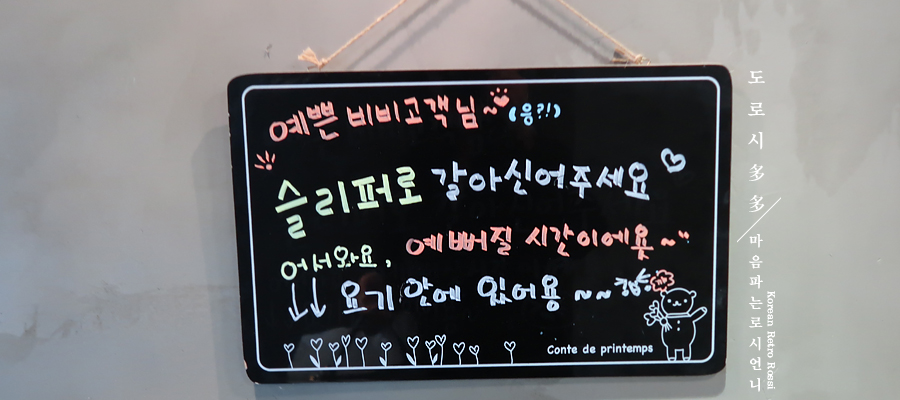 예쁜 비비고객님~ (응?!)
슬리퍼로 갈아신어주세요
어서와요, 예뻐질 시간이에용~"
↓↓ 요기 안에 있어용 ~~
Conte de printemps
도로시 多多
마음파는로시언니
Korean Retro Rossi